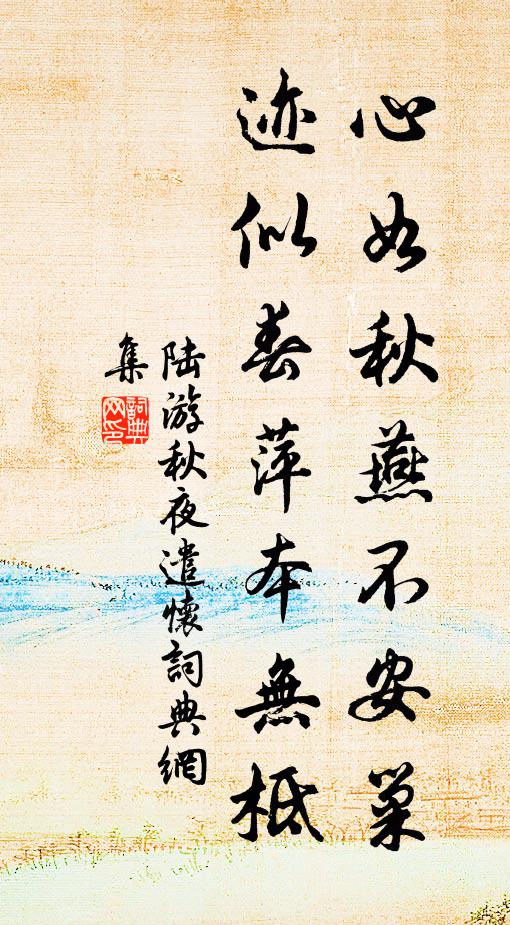 心如秋燕不安巢
迹似春萍本無柢
陆游秋夜遣懷詞典網
集
詞典網印